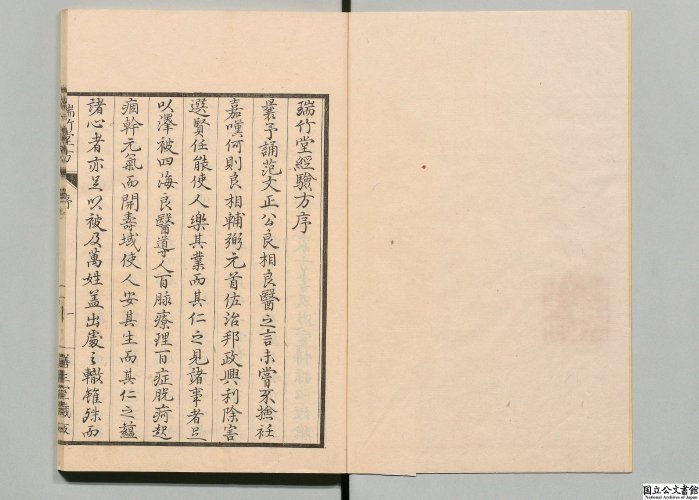 瑞竹堂經驗方序
曩予誦范文正公良相良醫之言未嘗不捨衽
嘉嘆何則良相輔弼元首佐治邦政興利除害
選賢任能使人樂其業而其仁之見諸事者足
以澤被四海良醫導人百脉療理百症脫疴起
痼幹元氣而開壽域使人安其生而其仁之蘊
諸心者亦足以被及萬姓盖出處之轍雖殊而
瑞竹堂方
序
一
國立公文書館
National Archives of Japan